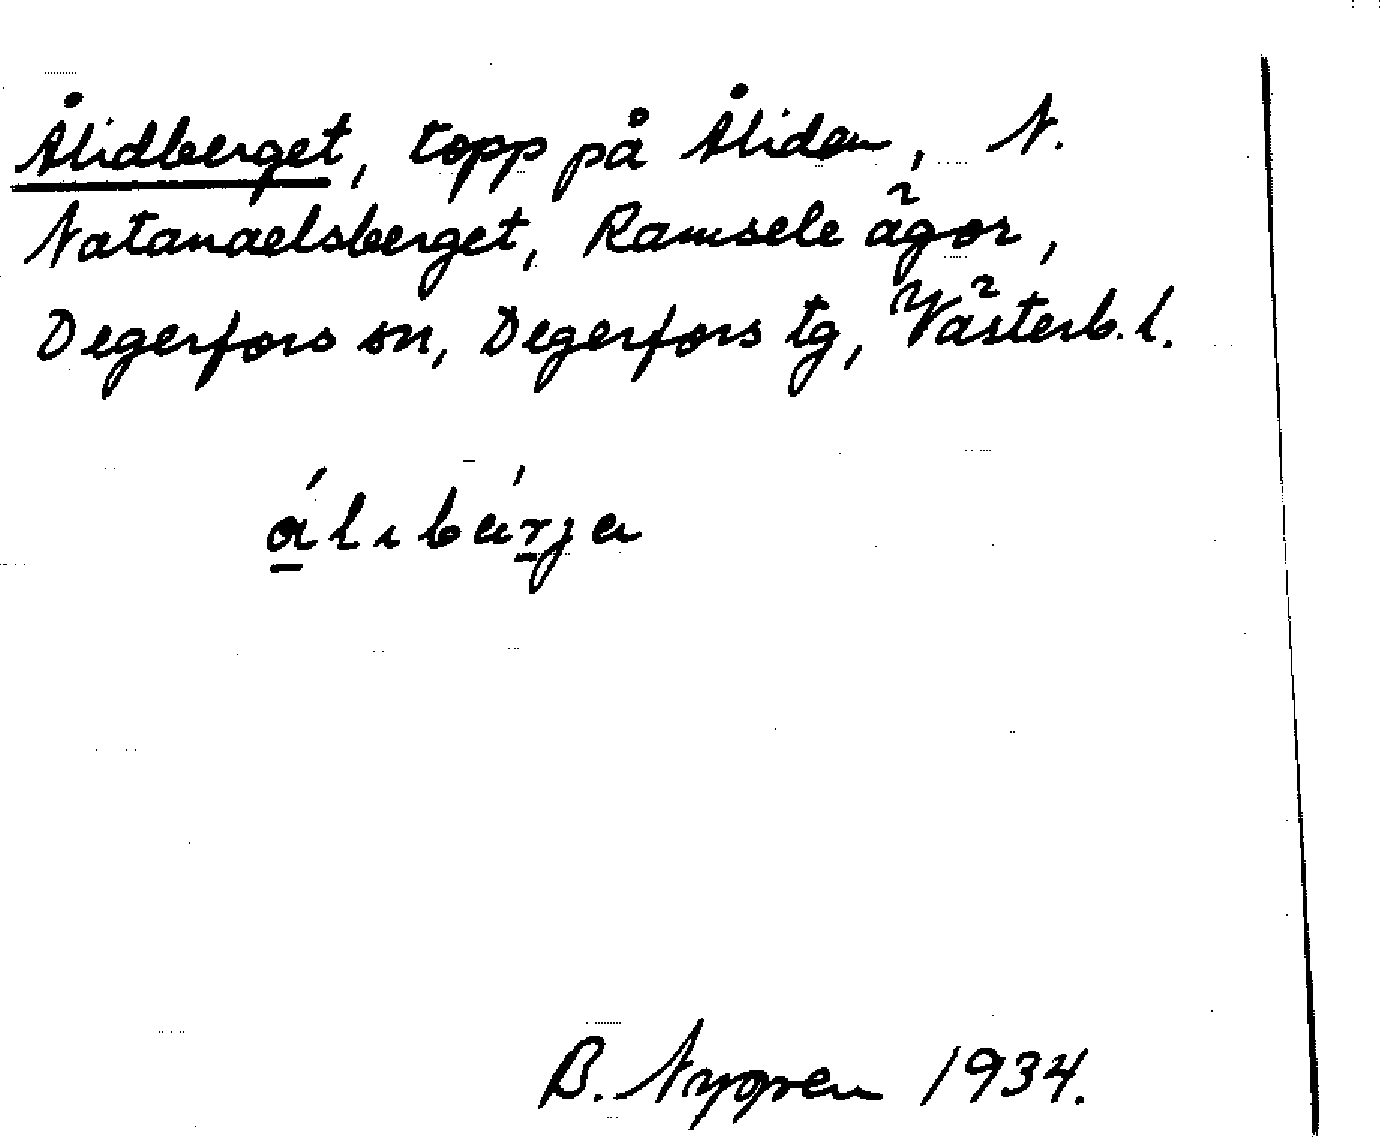 Ålidberget, topp på Åliden, N.
Natanaelsberget, Ramsele ägor,
Degerfors sn, Degerfors tg, Västerb. l.
álıbárja
B. Nygren 1934.